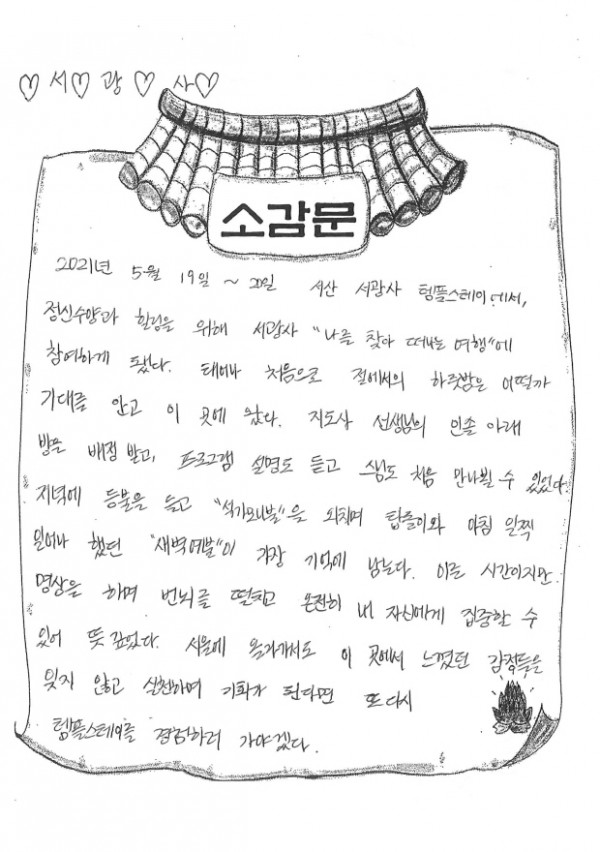 ♡서♡광♡사♡
소감문
2021년 5월 19일 ~ 20일 서산 서광사 템플스테이에서,
정신수양과 힐링을 위해 서광사 "나를 찾아 떠나는 여행"에
참여하게 됐다. 태어나 처음으로 절에서의 하룻밤은 어떨까
기대를 안고 이 곳에 왔다. 지도사 선생님의 인솔 아래
방을 배정 받고, 프로그램 설명도 듣고 스님도 처음 만나뵐 수 있었다.
저녁에 등불을 들고 "석가모니불"을 외치며 탑돌이와 아침 일찍
일어나 했던 "새벽예불"이 가장 기억에 남는다. 이른 시간이지만
명상을 하며 번뇌를 떨치고 온전히 내 자신에게 집중할 수
있어 뜻 깊었다. 서울에 올라가서도 이 곳에서 느꼈던 감정들을
잊지 않고 실천하며 기회가 된다면 또 다시
템플스테이를 경험하러 가야겠다.